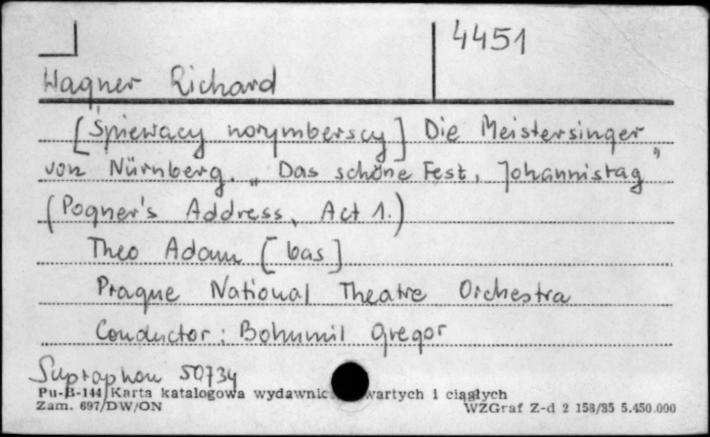 4451
Wagner Richard
[Śpiewacy norymberscy] Die Meistersinger
von Nürnberg. „Das schöne Fest, Johannistag"
(Pogner's Address, Act 1.)
Theo Adam [bas]
Prague National Theatre Orchestra
Conductor: Bohumil Gregor
Supraphon 50734
Pu-B-144 Karta katalogowa wydawnic wartych i ciągłych
Zam. 697/DW/ON WZGraf Z-d 2 158/85 5.450.000